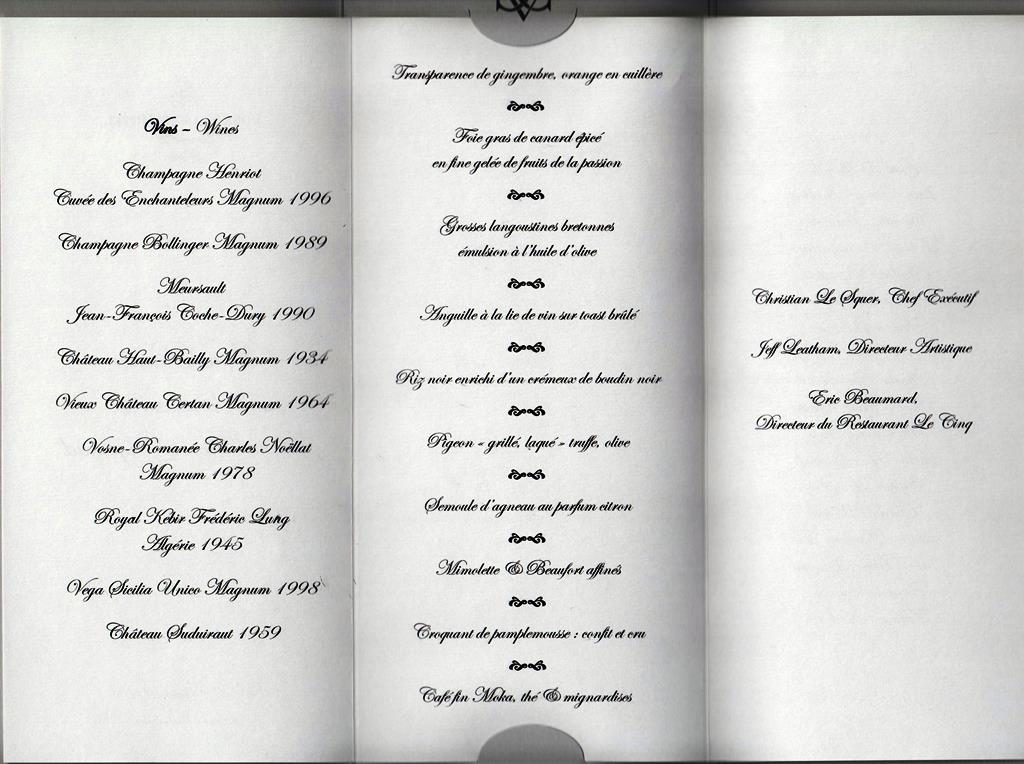 Vins - Wines
Champagne Henriot
Cuvée des Enchanteleurs Magnum 1996
Champagne Bollinger Magnum 1989
Meursault
Jean-François Coche-Dury 1990
Château Haut-Bailly Magnum 1934
Vieux Château Certan Magnum 1964
Vosne-Romanée Charles Noëllat
Magnum 1978
Royal Kebir Frédéric Lung
Algérie 1945
Vega Sicilia Unico Magnum 1998
Château Suduiraut 1959
Transparence de gingembre, orange en cuillère
Foie gras de canard épicé
en fine gelée de fruits de la passion
Grosses langoustines bretonnes
émulsion à l'huile d'olive
Anguille à la lie de vin sur toast brûlé
Riz noir enrichi d'un crémeux de boudin noir
Pigeon « grillé, laqué » truffe, olive
Semoule d'agneau au parfum citron
Mimolette & Beaufort affinés
Croquant de pamplemousse : confit et cru
Café fin Moka, thé & mignardises
Christian Le Squer, Chef Exécutif
Jeff Leatham, Directeur Artistique
Eric Beaumard,
Directeur du Restaurant Le Cinq